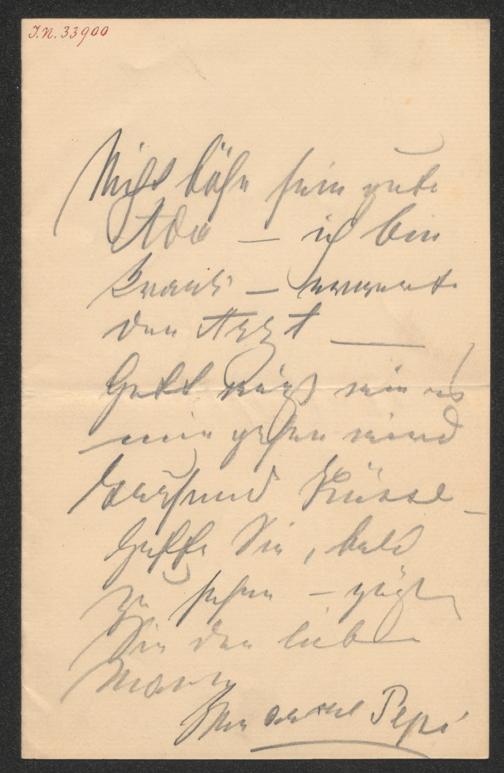 I.N. 33900
Nicht böse sein gute
Ada — ich bin
krank — erwarte
den Arzt —
Gott weiß wie es
mir gehen wird
tausend Küsse –
Hoffe Sie, bald
zu sehen –
Sie den lieben
Mann
Ihre arme Pepi